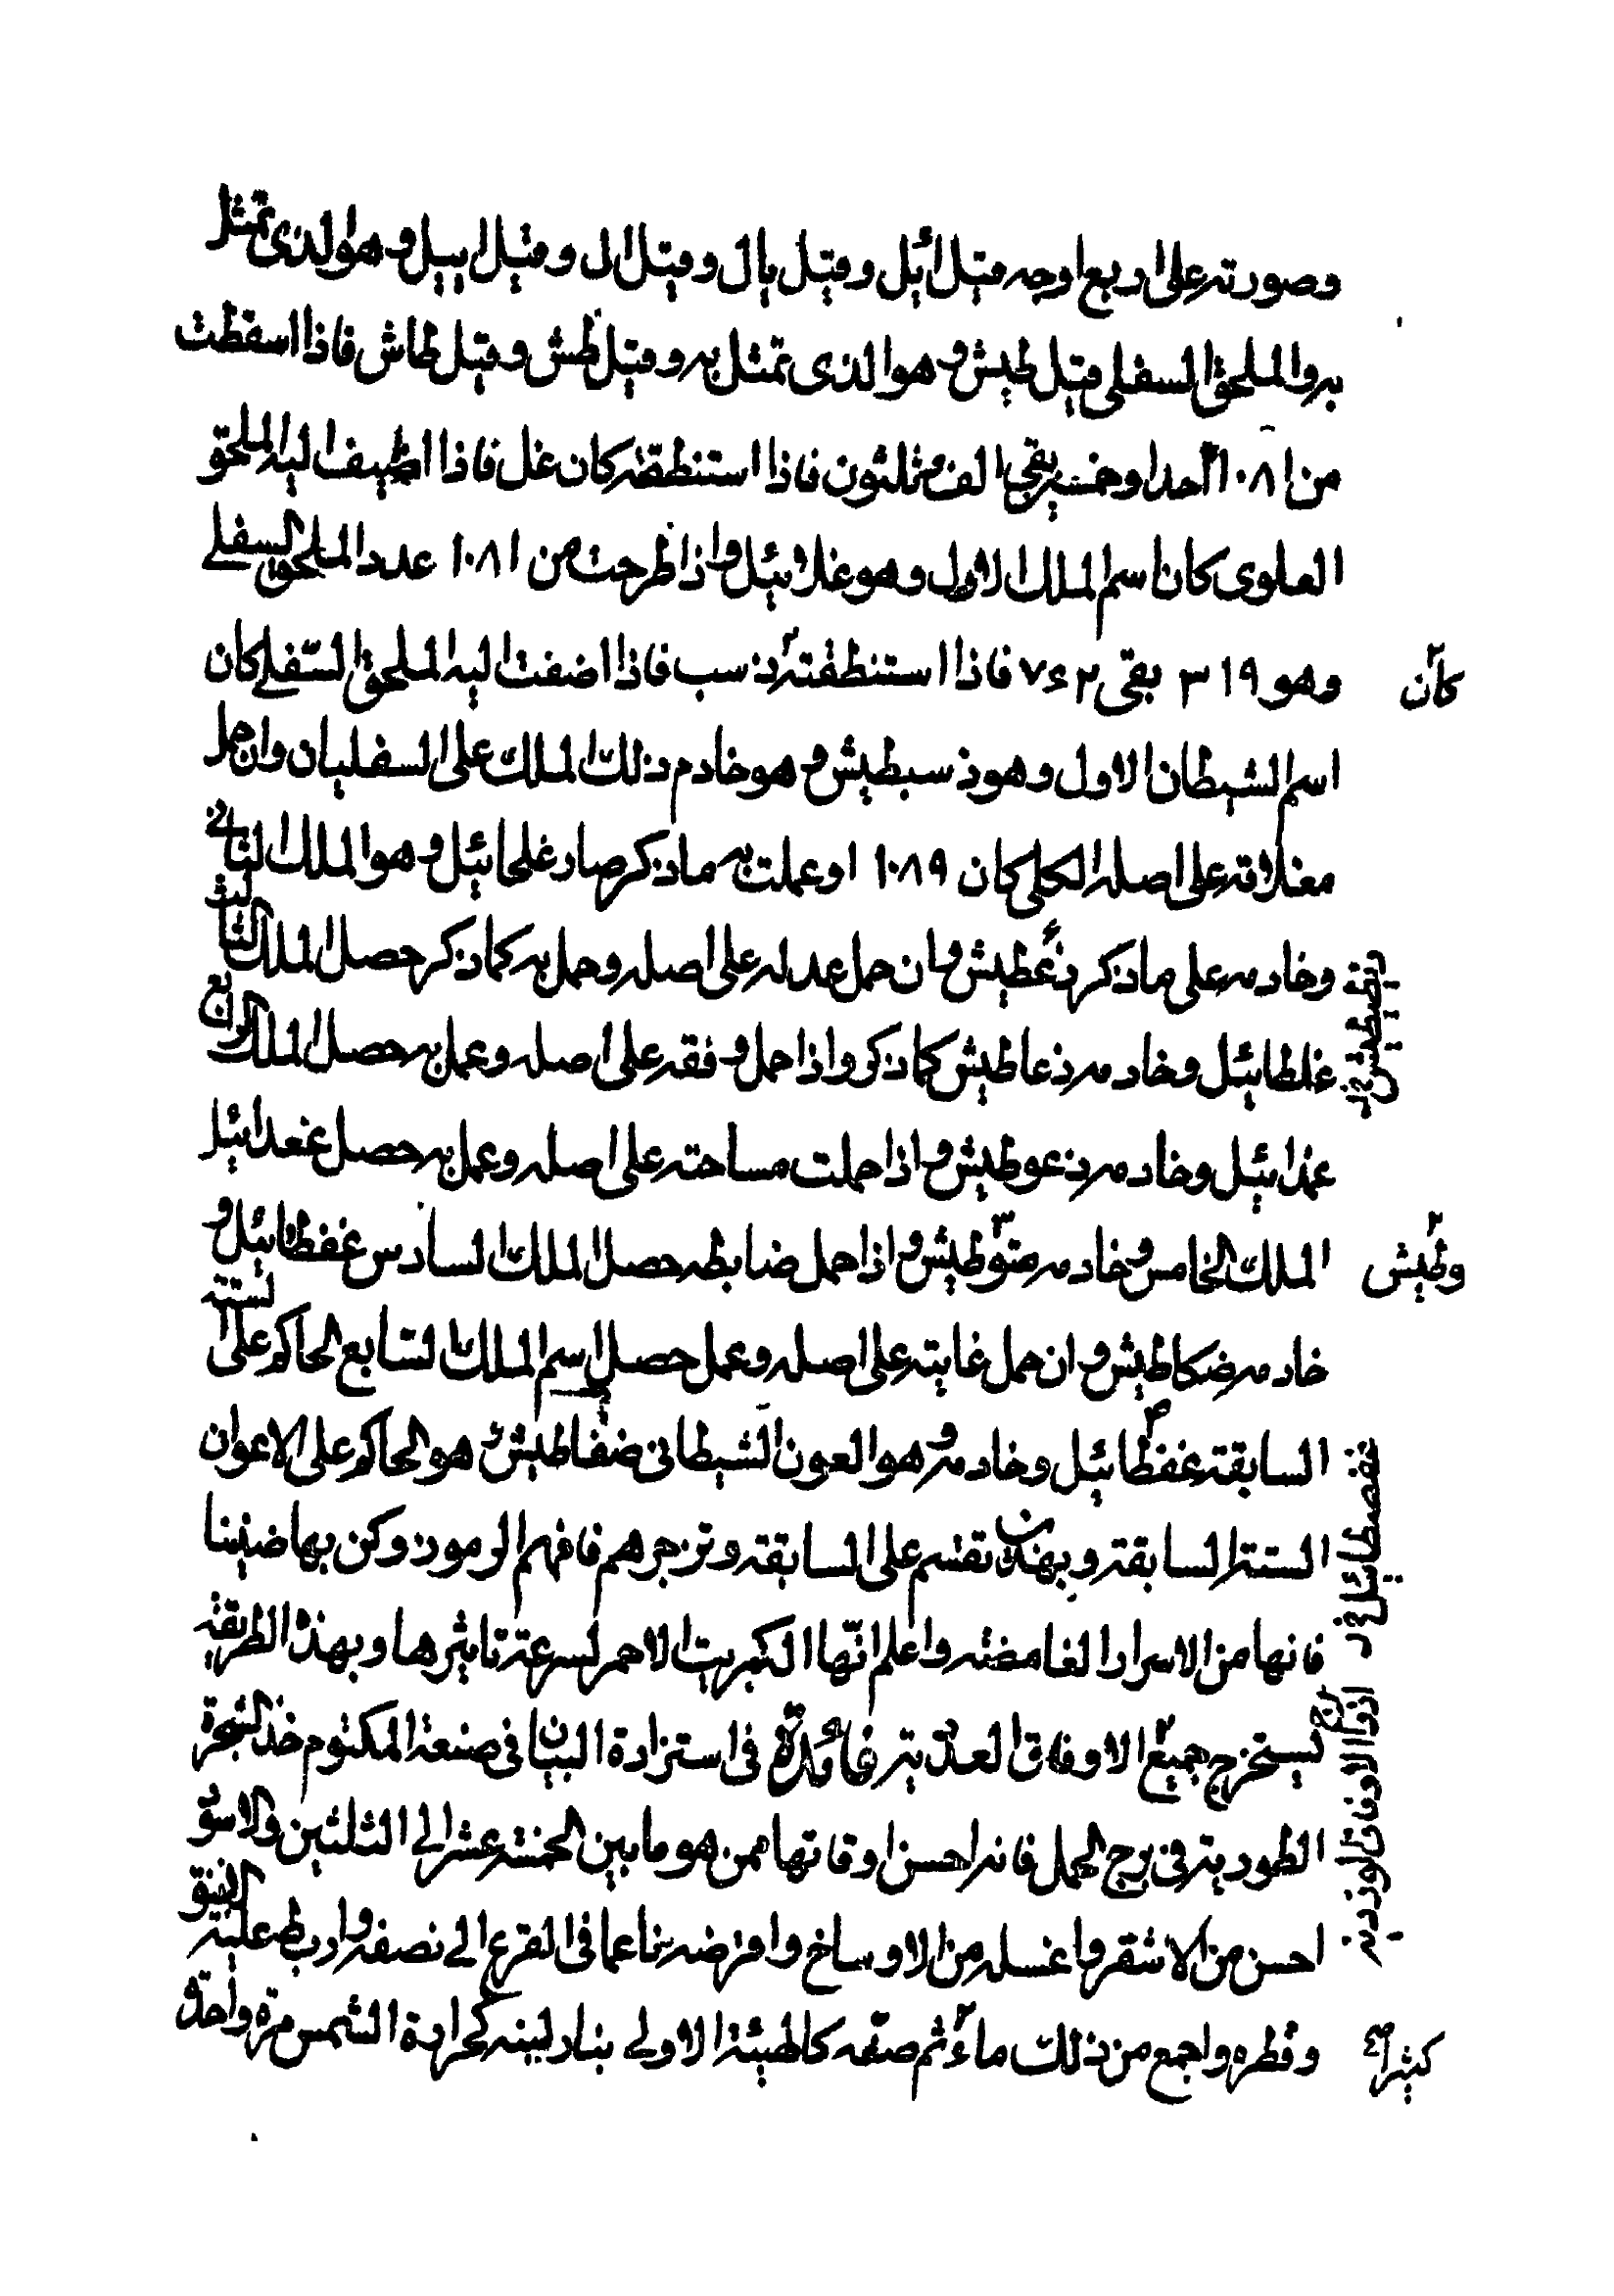 وصورته على اربع اوجه قيل ائيل وقيل يال وقيل ال وقيل اييل وهو الذى تمثل
به والملحق السفلى قيل طيش وهو الذى تمثل به وقيل طش وقيل طاش فاذا اسقطت
من ١٠٨١ احدا وخمسين بقى الف وثلثون فاذا استنطقته كان غل فاذا اضيف اليه الملحق
العلوى كان اسم الملك الاول وهو غلائيل واذا طرحت من ١٠٨١ عدد الملحق السفلى
وهو ٣١٩ بقى ٧٤٢ فاذا استنطقته ذسب فاذا اضفت اليه الملحق السفلى كان
كان
اسم الشيطان الاول وهو ذسبطيش وهو خادم ذلك الملك على السفليان وان حمل
مغلاقه على اصله الكلى كان ١٠٨٩ اوعملت به ماذكر صار غلحائيل وهو الملك الثانى
وخادمه على ماذكر ذعطيش وان حمل عدله على اصله وحمل به كماذكر حصل الملك الثالث
غلطائيل وخادمه ذعاطيش كماذكر واذا حمل وفقه على اصله وعمل به حصل الملك الرابع
غذائيل وخادمه ذعوطيش واذا حملت مساحته على اصله وعمل به حصل غعدائيل
الملك الخامس وخادمه ضوطيش واذا حمل ضابطه حصل الملك السادس غفظائيل و
وطيش
خادمه ضكاطيش وان حمل غايته على اصله وعمل حصل اسم الملك السابع الحاكم على الستة
السابقة غفظائيل وخادمه وهو العون الشيطانى ضفاطيش هو الحاكم على الاعوان
الستة السابقة وبهذين تقسم على السابقة وتزجرهم فافهم الرموز وكن بها ضنينا
فانها من الاسرار الغامضة واعلم انها الكبريت الاحمر لسرعة تاثيرها وبهذه الطريقة
يستخرج جميع الاوفاق العددية فائدة فى استزادة البيان فى صنعة المكتوم خذ الشجرة
الطورية فى برج الحمل فانه احسن اوقاتها ممن هو مابين الخمسة عشر الى الثلثين والاسود
احسن من الاشقر واغسله من الاوساخ واقرضه ناعما فى القرع الى نصفه واربط عليه الانبيق
وقطره واجمع من ذلك ماء ثم صفه كالهيئة الاولى بنار لينه كحرارة الشمس مرة واحدة و
كثيرا